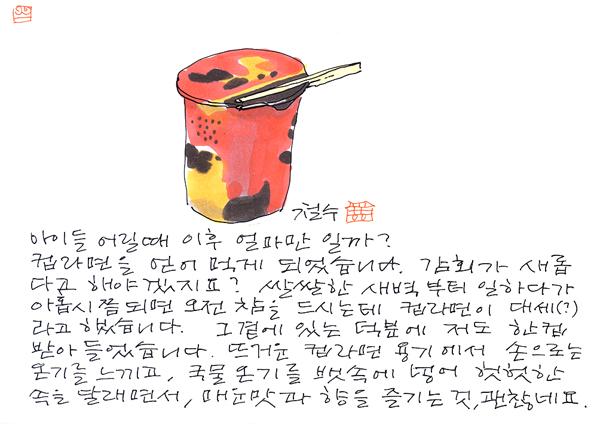 철수
아이들 어릴때 이후 얼마만 일까?
컵라면을 얻어 먹게 되었습니다. 감회가 새롭
다고 해야겠지요? 쌀쌀한 새벽부터 일하다가
아홉시쯤되면 오전 참을 드시는데 컵라면이 대세(?)
라고 했습니다. 그곁에 있는 덕분에 저도 한컵
받아 들었습니다. 뜨거운 컵라면 용기에서 손으로는
온기를 느끼고, 국물 온기를 뱃속에 넣어 헛헛한
속을 달래면서, 매운맛과 향을 즐기는 것, 괜찮네요.